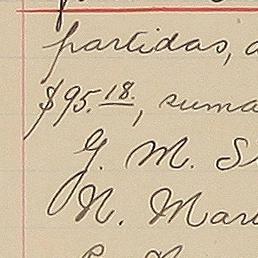 partidas,
$95.18, suma
G. M. S
N. Mar